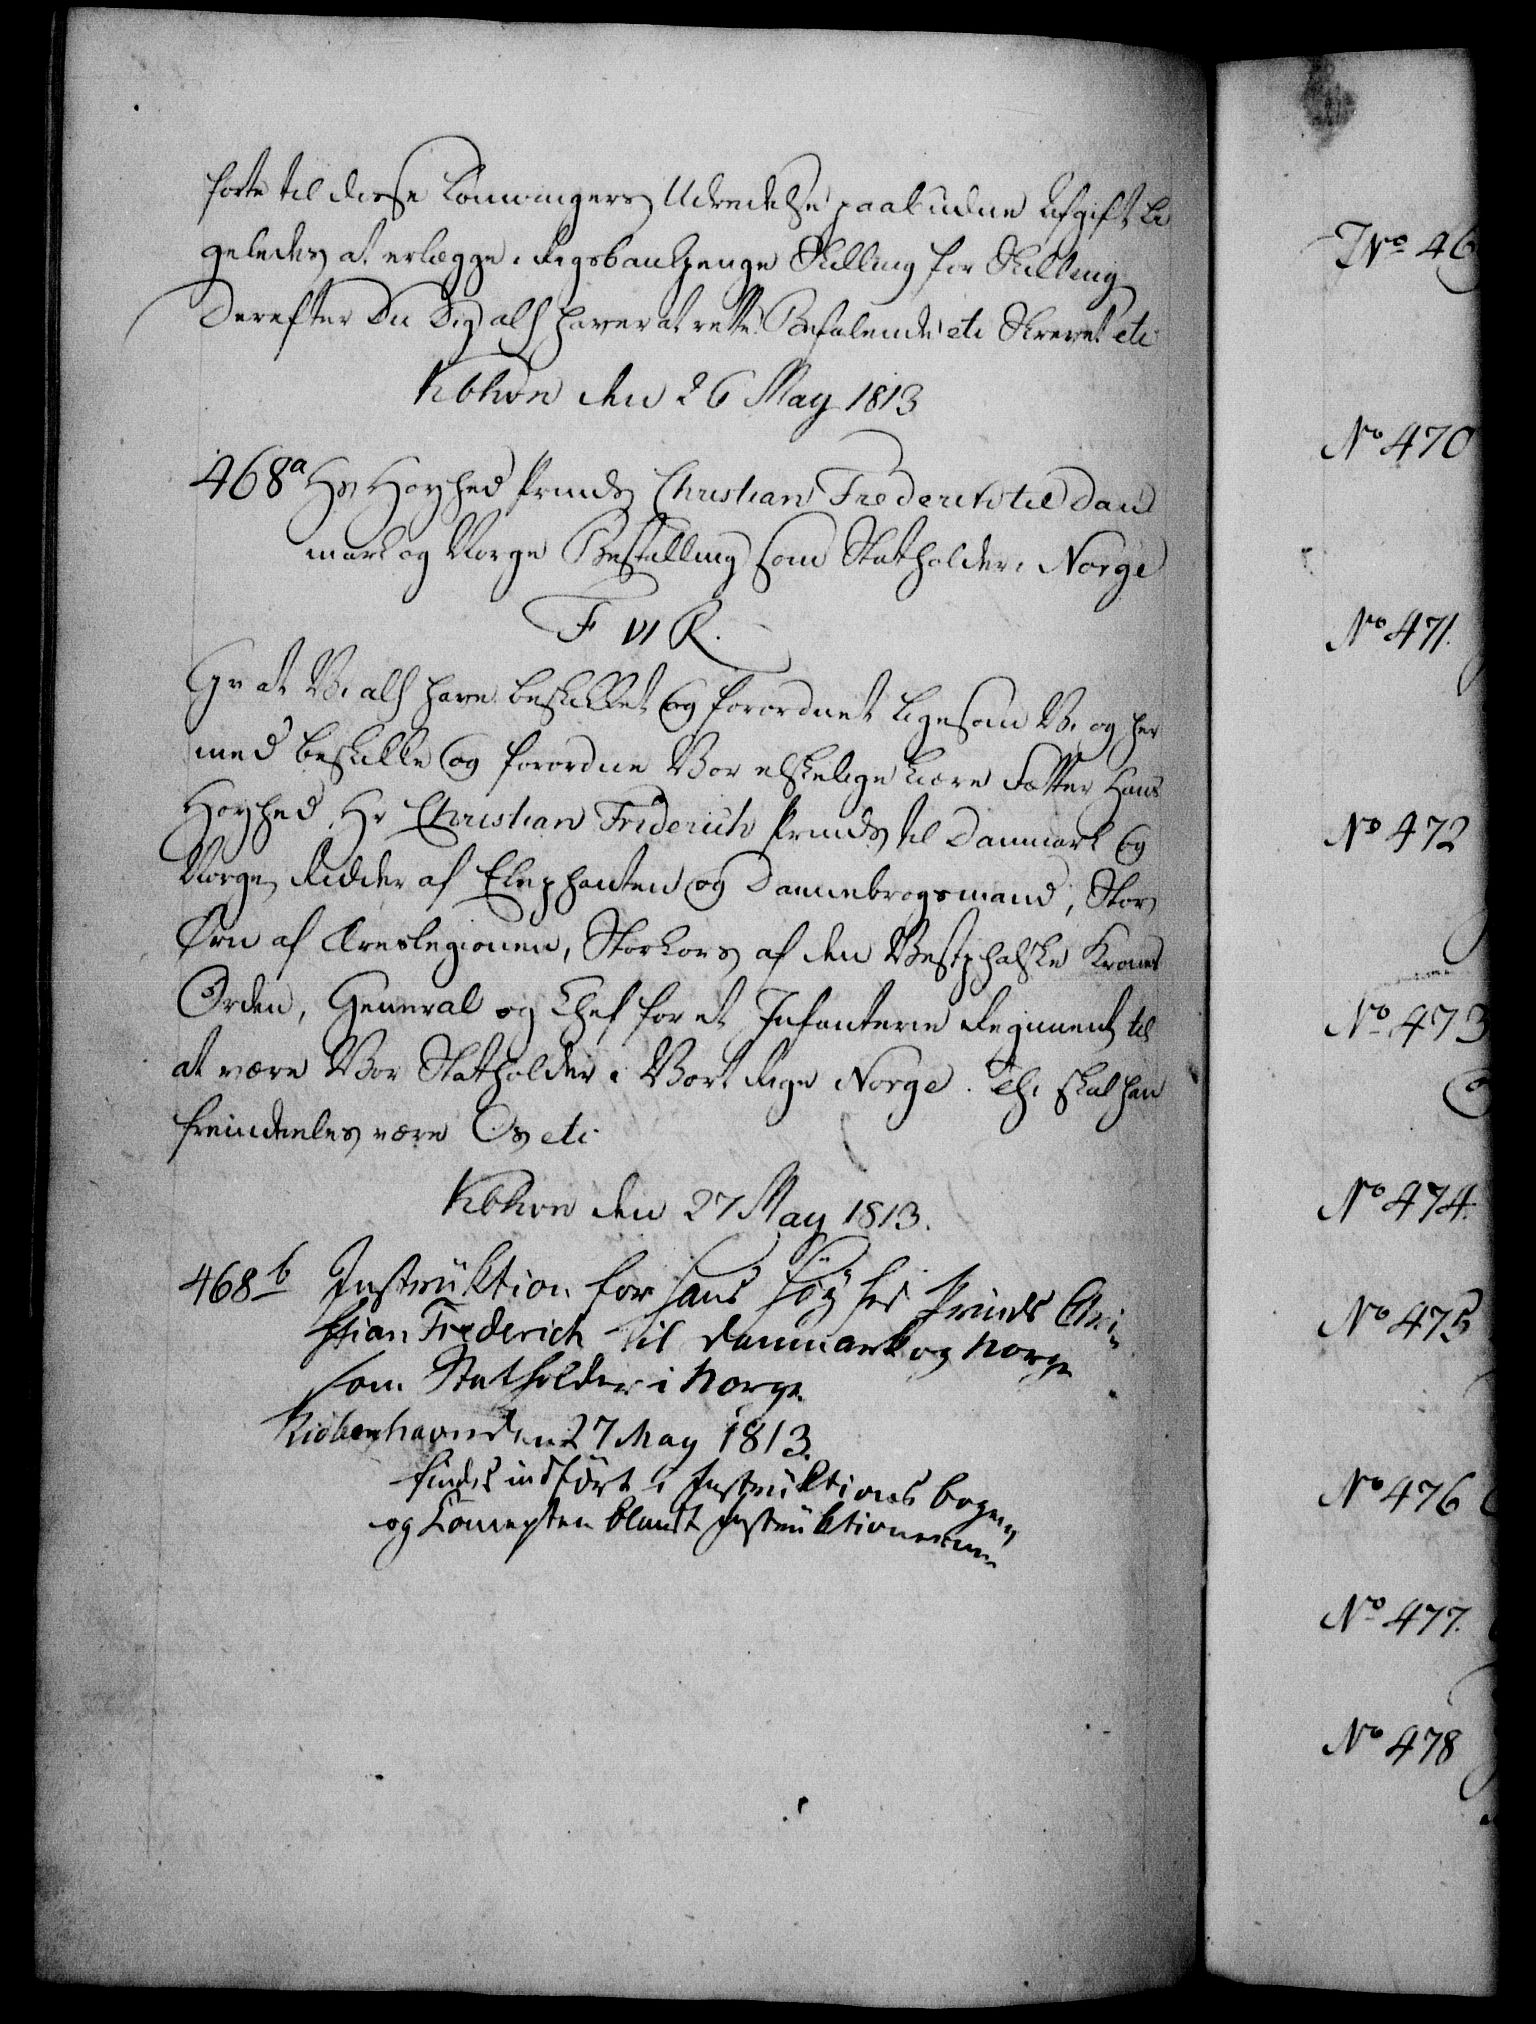 forte til disse Lønningers Udredelse paabudne Afgift li
geledes at erlægge i Rigsbankpenge Skilling for Skilling
Derefter Du Dig als haver at rette. Befalende etc Skrevet etc
Kbhvn den 26 May 1813
468a Hs Høyhed Prinds Christian Frederiks til Dan
mark og Norge Bestalling som Statholder i Norge
F VI R.
Gv at Vi alf have beskikket og forordnet ligesom Vi og her
med beskikke og forordne Vor elskelige kiære Fætter Hans
Høyhed Hr Christian Friderich Prinds til Danmark og
Norge, Ridder af Elephanten og Dannebrogsmand, Stor
Ørn af Æreslegionen, Storkors af den Westphalske Krones
Orden, General og Chef for et Infanterie Regiment til
at være Vor Statholder i Vort Rige Norge. Thi skal han
fremdeeles være Os etc
Kbhvn den 27 May 1813.
468b Instruktion for Hans Høyhed Prinds Chri-
stian Frederich til Danmark og Norge
som Statholder i Norge.
Kiøbenhavn den 27 May 1813.
findes indført i Instruktions bogen
og Concepten blandt Instruktionerne
No 46
No 470
No 471.
No 472
No 473
No 474.
No 475
No 476
No 477.
No 478